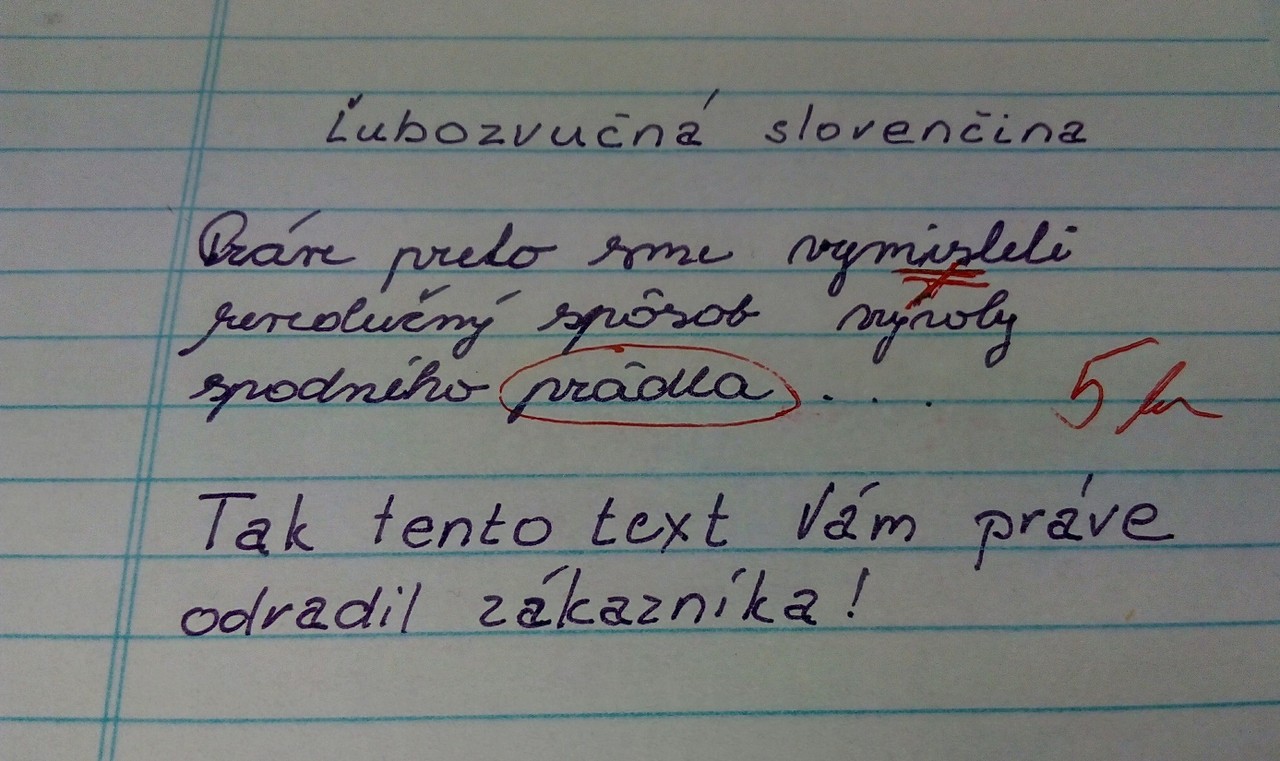 Ľubozvučná slovenčina
Práve preto sme vymisleli
revolučný spôsob výroby
spodného prádla . . .
5
Tak tento text Vám práve
odradil zákazníka!